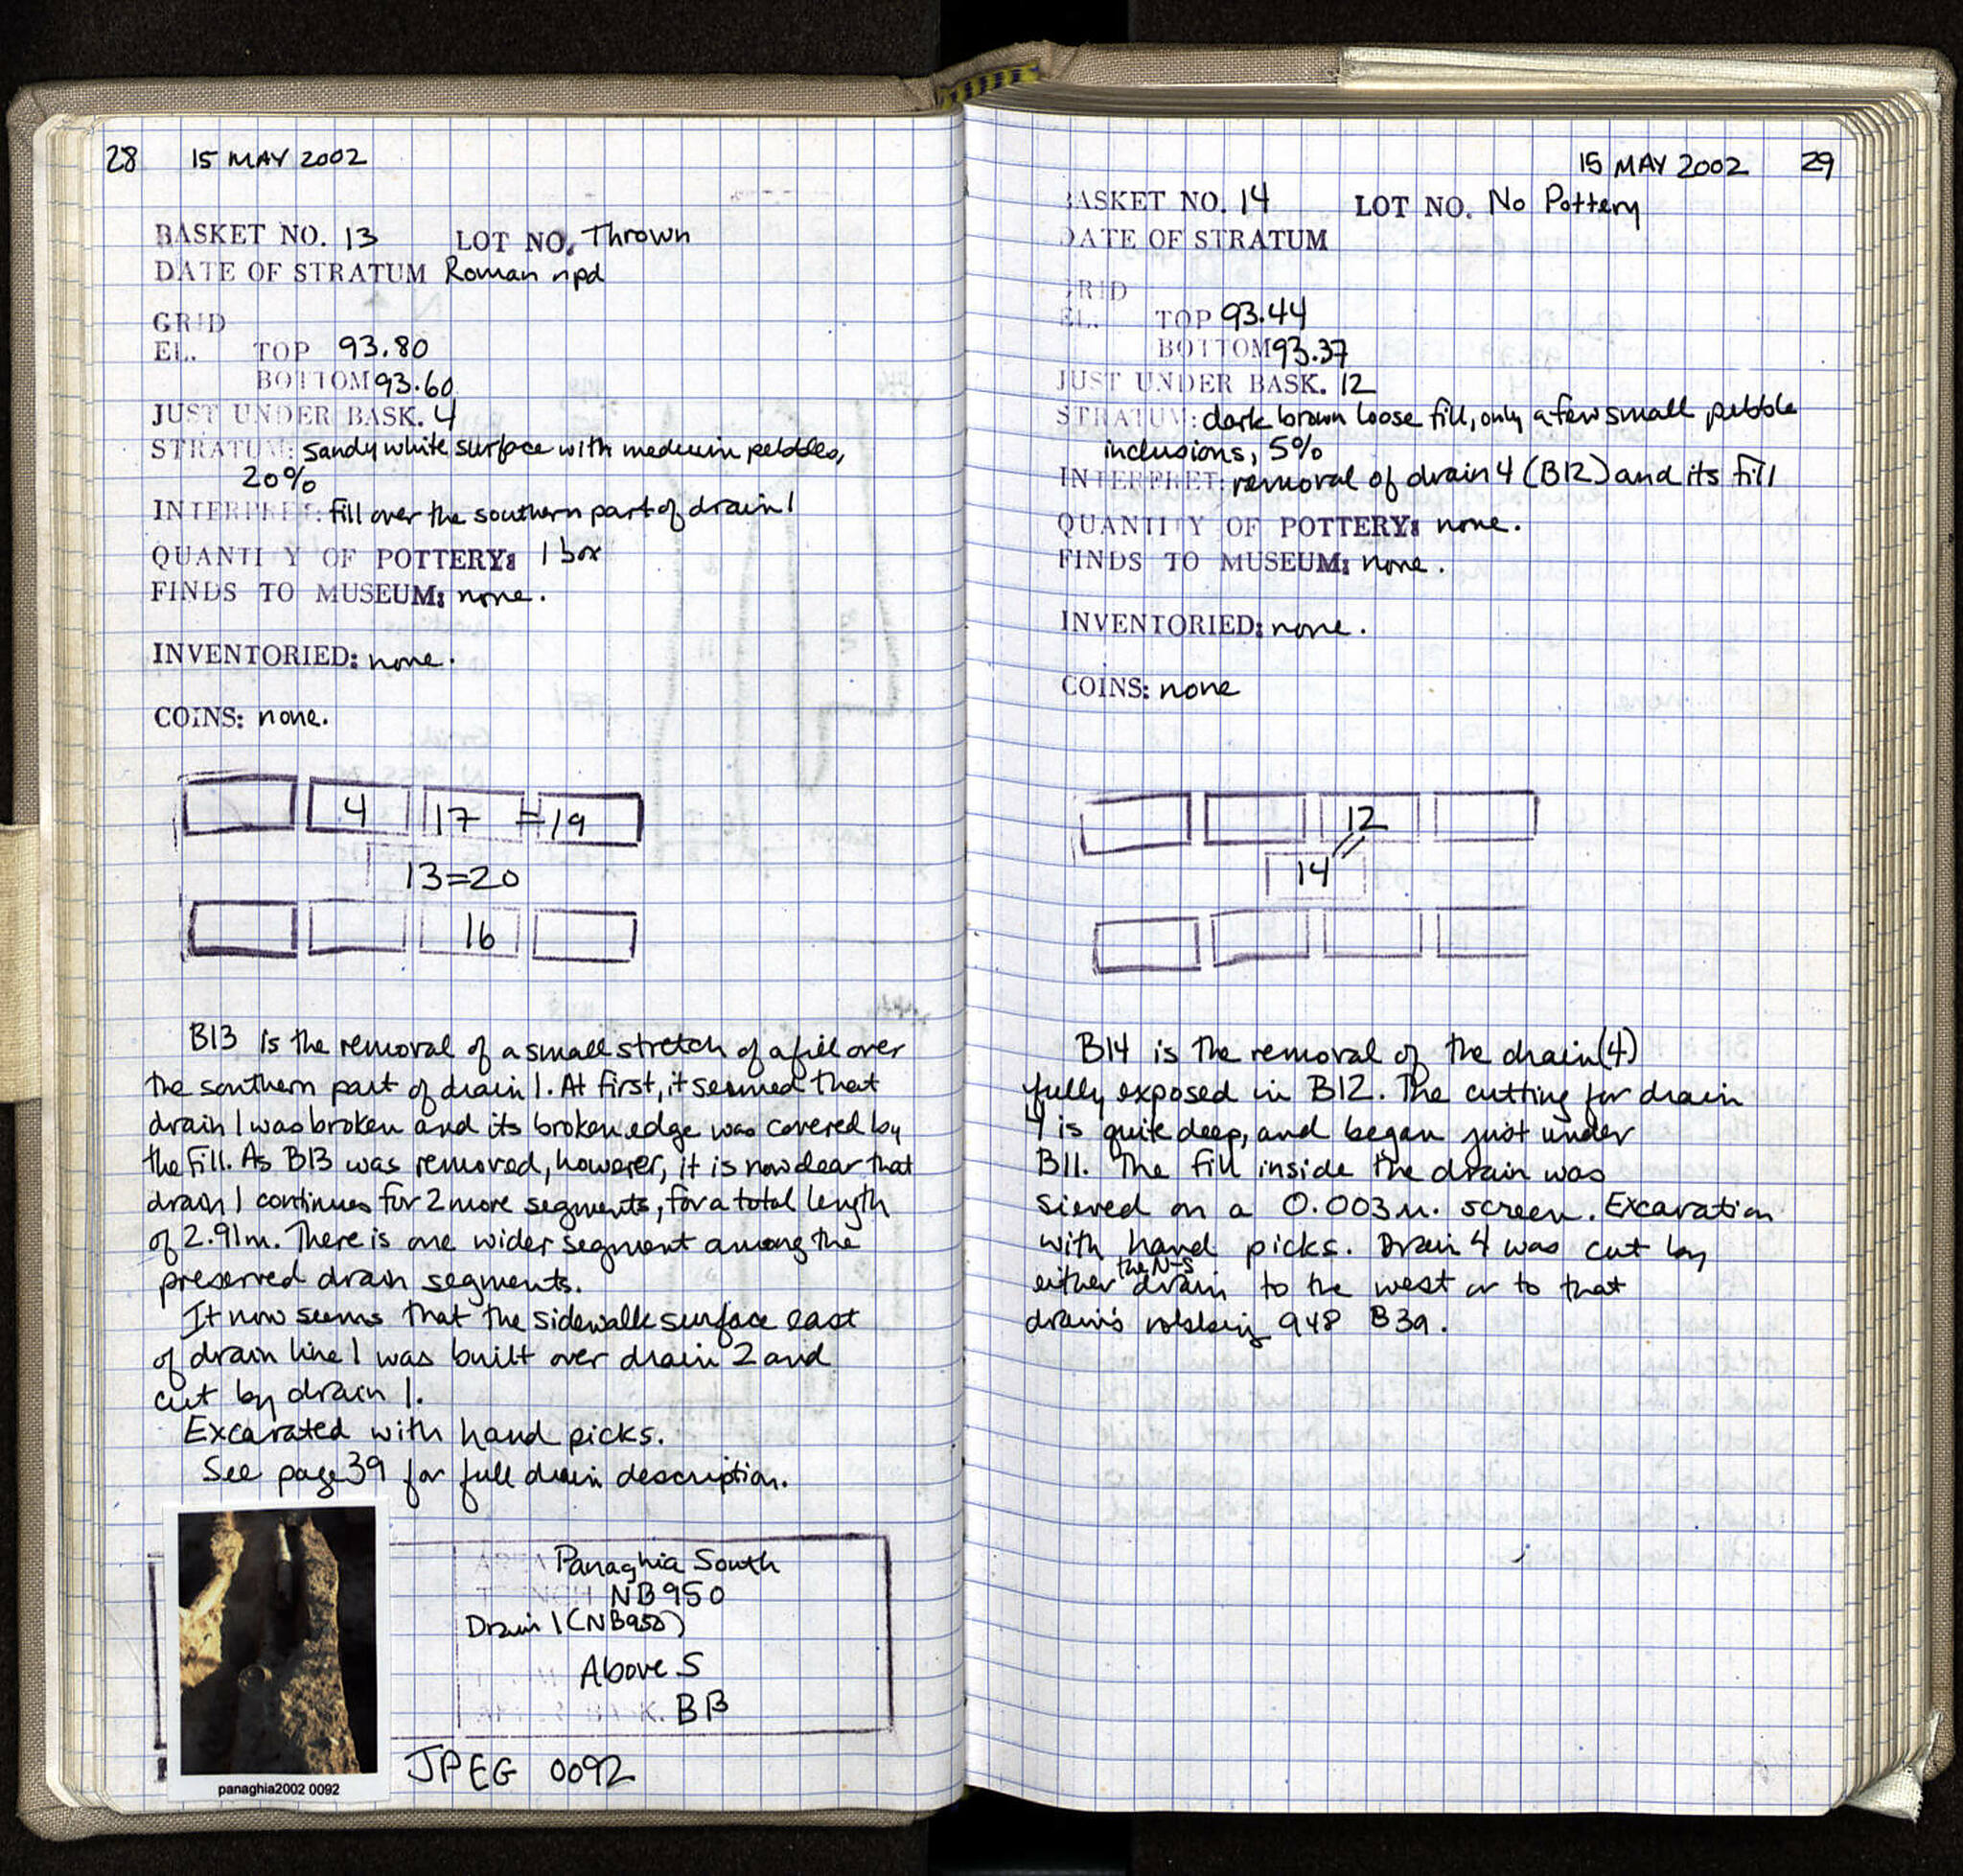 28 15 MAY 2002
BASKET NO. 13 LOT NO. Thrown
DATE OF STRATUM Roman npd
GRID
EL. TOP 93.80
BOTTOM 93.60
JUST UNDER BASK. 4
STRATUM: sandy white surface with medium pebbles,
20%
INTERPRET: fill over the southern part of drain 1
QUANTI Y OF POTTERY: 1 box
FINDS TO MUSEUM: none.
INVENTORIED: none.
COINS: none.
4 17 = 19
13=20
16
B13 is the removal of a small stretch of a fill over
the southern part of drain 1. At first, it seemed that
drain 1 was broken and its broken edge was covered by
the fill. As B13 was removed, however, it is now clear that
drain 1 continues for 2 more segments, for a total length
of 2.91m. There is one wider segment among the
preserved drain segments.
It now seems that the sidewalk surface east
of drain line 1 was built over drain 2 and
cut by drain 1.
Excavated with hand picks.
See page 39 for full drain description.
AREA Panaghia South
TRENCH NB950
Drain 1 (NB950)
Above S
BASK. B13
panaghia2002 0092
JPEG 0092
15 MAY 2002 29
BASKET NO. 14 LOT NO. No Pottery
DATE OF STRATUM
GRID
EL. TOP 93.44
BOTTOM 93.37
JUST UNDER BASK. 12
STRATUM: dark brown loose fill, only a few small pebble
inclusions, 5%
INTERPRET: removal of drain 4 (B12) and its fill
QUANTITY OF POTTERY: none.
FINDS TO MUSEUM: none.
INVENTORIED: none.
COINS: none
12
14
B14 is the removal of the drain (4)
fully exposed in B12. The cutting for drain
4 is quite deep, and began just under
B11. The fill inside the drain was
sieved on a 0.003m. screen. Excavation
with hand picks. Drain 4 was cut by
either the N-S drain to the west or to that
drain's robbing 948 B39.